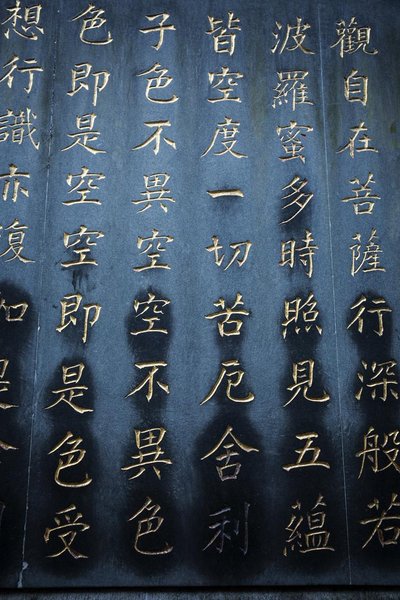 觀自在菩薩行深般若
波羅蜜多時照見五蘊
皆空度一切苦厄舍利
子色不異空空不異色
色即是空空即是色受
想行識亦復如是